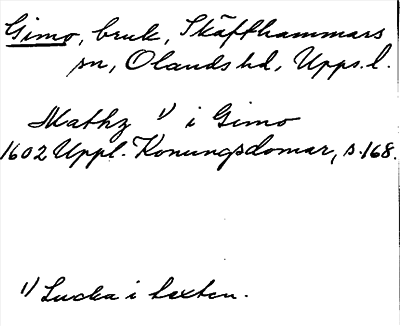 Gimo, bruk, Skäfthammars
sn, Olands hd, Upps.l.
Mathz 1) i Gimo
1602 Uppl. Konungsdomar, s.168.
1) Lucka i texten.